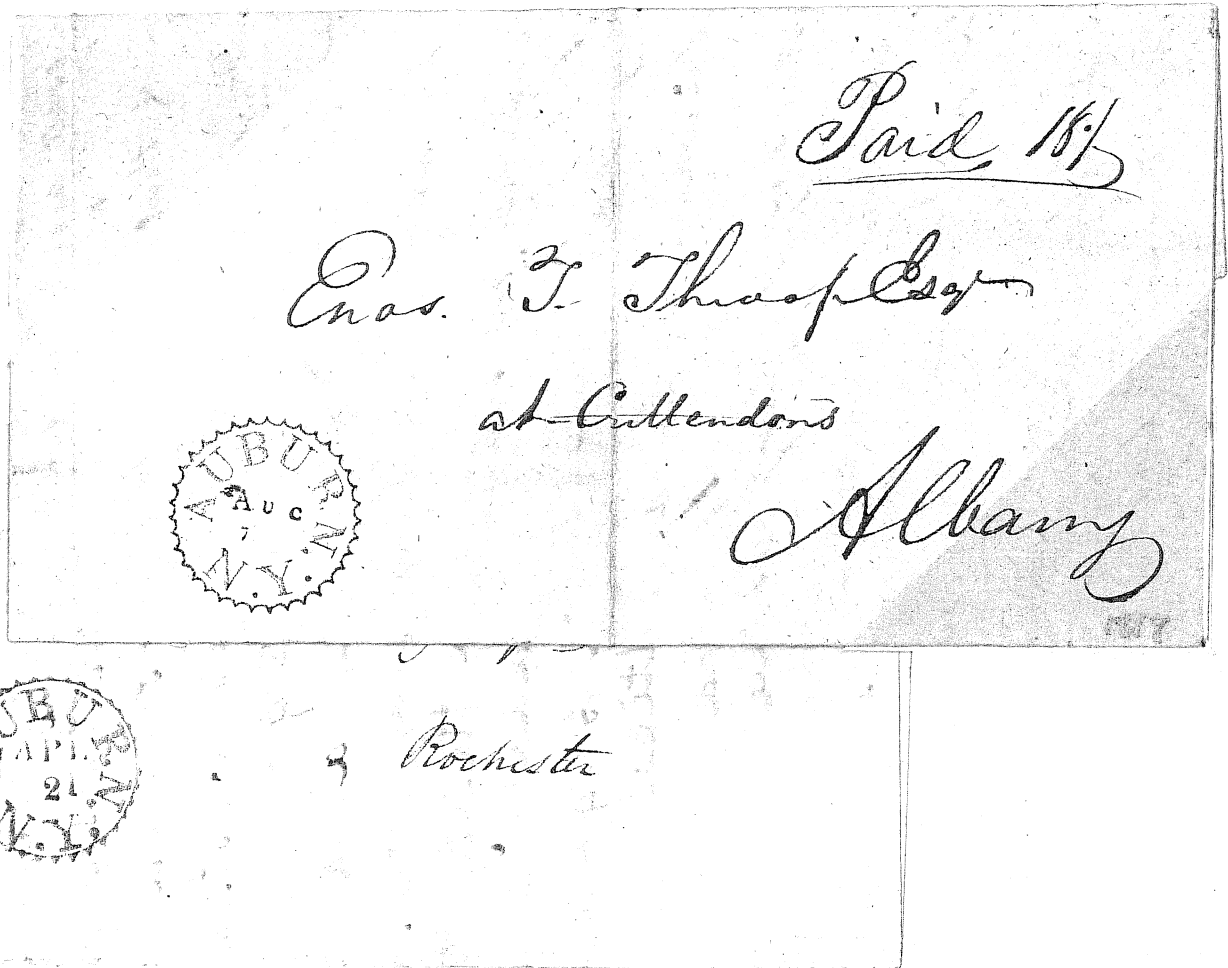 Paid 18/
Enos. T. Throop Esqr
at Crittendons
Albany
AUBURN
AUG
7
N.Y.
Rochester
UBURN
APL
21
N.Y.